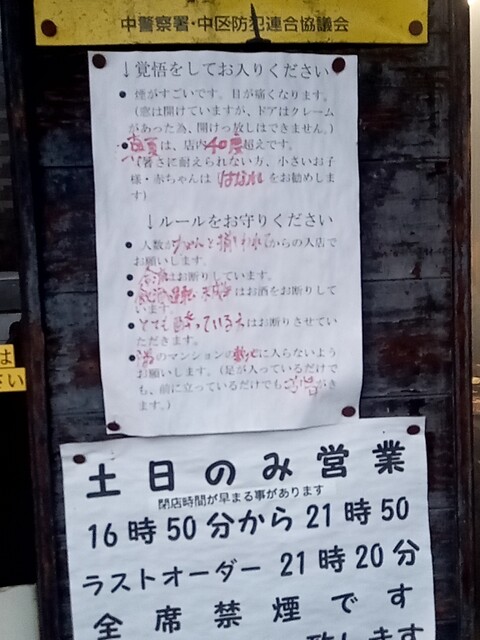 中警察署・中区防犯連合協議会
↓覚悟をしてお入りください
● 煙がすごいです。目が痛くなります。
(窓は開けていますが、ドアはクレーム
があった為、開けっ放しはできません。)
● 真夏は、店内40度超えです。
(暑さに耐えられない方、小さいお子
様・赤ちゃんは はなれ をお勧めしま
す)
↓ルールをお守りください
● 人数が ちゃんと揃われて からの入店で
お願いします。
● はお断りしています。
● 飲酒運転 未成年 はお酒をお断りして
います。
● とても酔っている方 はお断りさせてい
ただきます。
● のマンションの敷地に入らないよう
お願いします。(足が入っているだけで
も、前に立っているだけでも がき
ます。)
は
さい
土日のみ営業
閉店時間が早まる事があります
16時50分から21時50
ラストオーダー 21時20分
全席禁煙です
致します